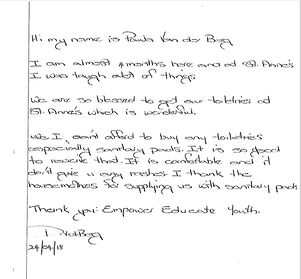 Hi my name is Paula Van der Berg
I am almost 4 months here and ad St. Anne's
I was taugh alot of things
We are so blessed to get our toiletries ad
St. Anne's which is wonderful.
We I can't afford to buy any toiletries
especially sanitary pads. It is so good
to receive that. It is comfortable and it
don't give u any rashes. I thank the
housemothers for supplying us with sanitary pads
Thank you: Empower Educate Youth.
24/04/18